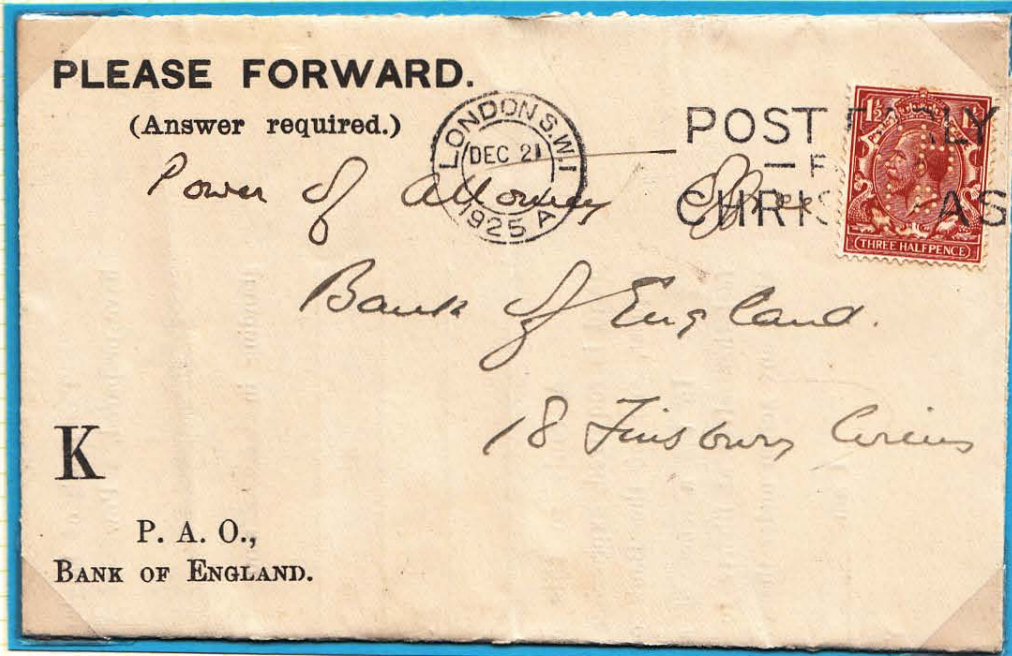 PLEASE FORWARD.
(Answer required.)
LONDON S.W.1
DEC 21
1925 A
POST EARLY
CHRISTMAS
1½
THREE HALFPENCE
Power of Attorney Office
Bank of England.
18 Finsbury Circus
K
P. A. O.,
BANK OF ENGLAND.